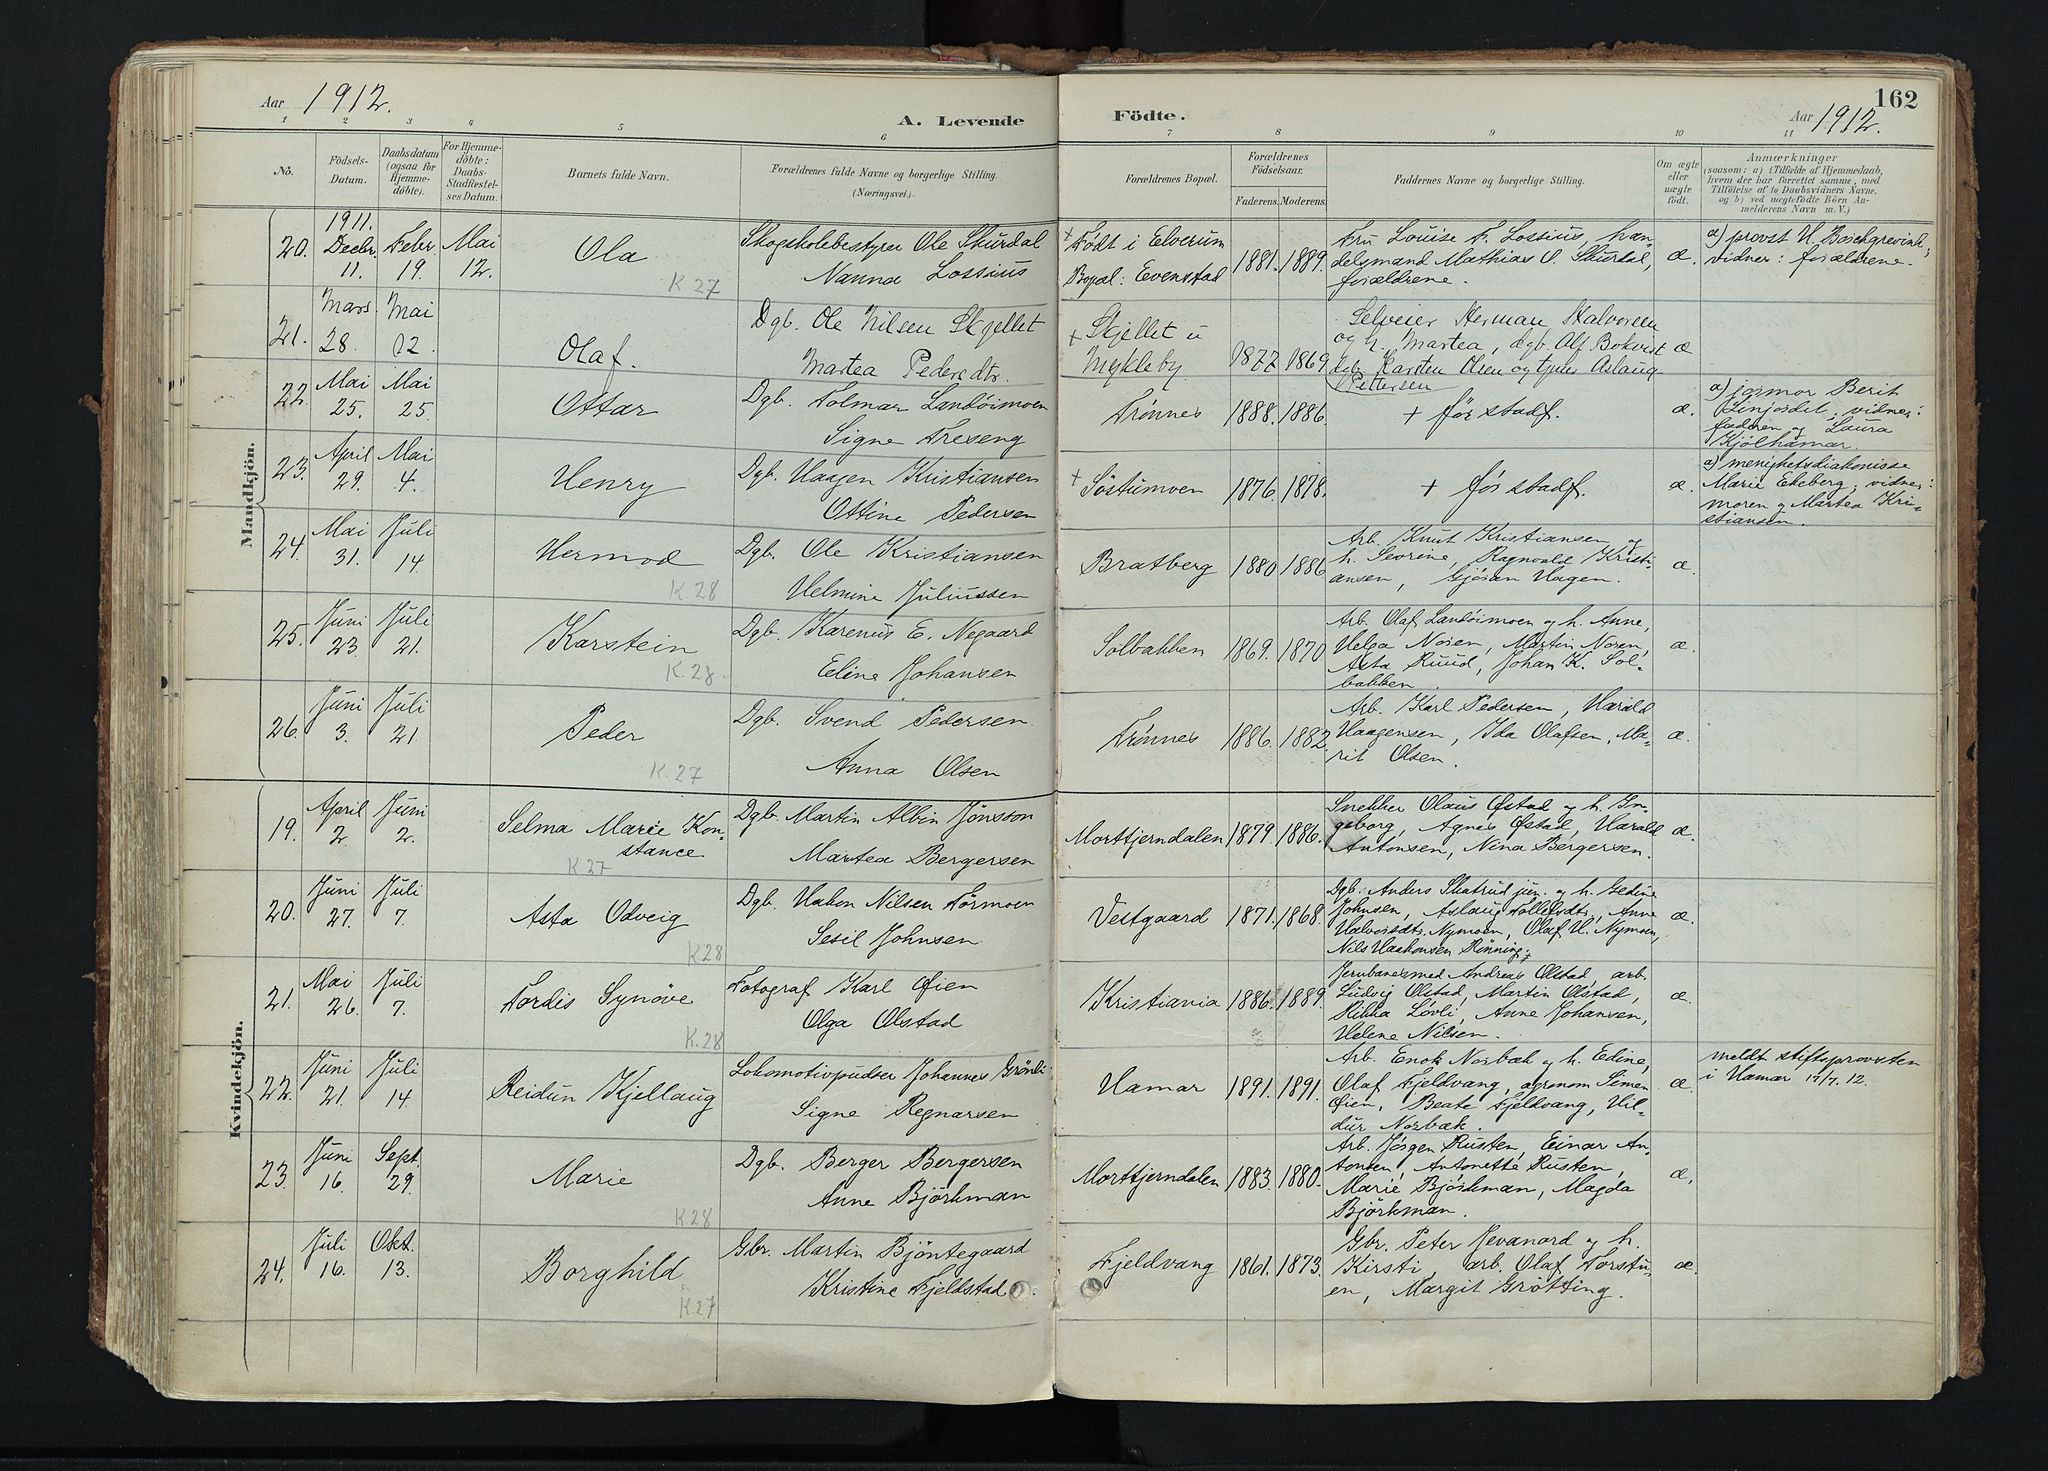 Aar 1912.
A. Levende
Födte.
Aar 1912.
162
1 2 3 4 5 6 7 8 9 10 11
No.
Födsels-
Datum.
Daabsdatum
(ogsaa for
Hjemme-
döbte).
For Hjemme-
döbte:
Daabs-
Stadfæstel-
ses Datum.
Barnets fulde Navn.
Forældrenes fulde Navne og borgerlige Stilling.
(Næringsvei.)
Forældrenes Bopæl.
Forældrenes
Födselsaar.
Faderens. Moderens.
Faddernes Navne og borgerlige Stilling.
Om ægte
eller
uægte
födt.
Anmærkninger
(saasom: a) i Tilfælde af Hjemmedaab,
hvem der har forrettet samme, med
Tilföielse af to Daabsvidners Navne.
og b) ved uægtefödte Börn An-
melderens Navn m. V.)
Mandkjön.
20.
1911.
Decbr.
11.
Febr.
19.
Mai
12.
Ola
K 27
Skogskolebestyrer Ole Skurdal
Nanna Lossius
+ Født i Elverum
Bopæl: Evenstad
1881. 1889.
Fru Louise F. Lossius, han-
delsmand Mathias O. Skurdal,
forældrene.
æ.
a) provst H. Borchgrevink;
vidner: forældrene.
21.
Mars
28.
Mai
12.
Olaf.
Dgb. Ole Nilsen Skjellet
Martea Pedersdtr.
+ Skjellet u
Mykleby
1877 1869
Selveier Herman Halvorsen
og h. Martea, dgb. Alf Bokvist
dgb. Karsten Olsen og tjener Aslaug
Pettersen
æ
22.
Mai
25.
Mai
25
Ottar
Dgb. Folmar Landøimoen
Signe Treseng
Trønnes
1888. 1886.
+ før stadf.
æ.
a) jormor Berit
Linjordet; vidner:
faderen og Laura
Kjølhamar.
23.
April
29.
Mai
4.
Henry
Dgb. Haagen Kristiansen
Ottine Pedersen
+ Søstumoen
1876. 1878.
+ før stadf.
æ.
a) menighetsdiakonisse
Marie Ekeberg; vidner:
moren og Martea Kri-
stiansen.
24.
Mai
31.
Juli
14.
Hermod
K. 28
Dgb. Ole Kristiansen
Helmine Juliussen
Bratberg
1880 1886
Arb. Knut Kristiansen og
h. Sevrine, Ragnvald Kristi-
ansen, Gjøran Hagen.
æ.
25.
Juni
23.
Juli
21.
Karstein
K. 28.
Dgb. Karenus E. Negaard
Eline Johansen
Solbakken
1869. 1870
Arb. Olaf Landøimoen og h. Anne,
Helga Noren, Martin Noren,
Asta Ruud, Johan K. Sol-
bakken.
æ.
26.
Juni
3.
Juli
21.
Peder
K. 27
Dgb. Svend Pedersen
Anna Olsen
Trønnes
1886. 1882.
Arb. Karl Pedersen, Harald
Haagensen, Ida Olafsen, Ma-
rit Olsen.
æ.
Kvindekjön.
19.
April
2.
Juni
2.
Selma Marie Kon-
stance
K 27
Dgb. Martin Albin Jonsson
Martea Bergersen
Morttjerndalen
1879. 1886.
Snekker Olaus Østad og h. In-
geborg, Agnes Østad, Harald
Antonsen, Nina Bergersen.
æ.
20.
Juni
27.
Juli
7.
Asta Odveig
K 28
Dgb. Hakon Nilsen Tørmoen
Sesil Johnsen
Vestgaard
1871. 1868.
Dgb. Anders Skatrud jun. og h. Gedine
Johnsen, Aslaug Tollefsdtr., Anne
Halvorsdtr. Nymoen, Olaf H. Nymoen,
Nils Haakonsen Rønning.
æ.
21.
Mai
26.
Juli
7.
Tordis Synøve
K. 28
Fotograf Karl Øien
Olga Olstad
Kristiania
1886. 1889.
Jernbanesmed Andreas Olstad, arb.
Ludvig Olstad, Martin Olstad,
Rikka Løvli, Anne Johansen,
Helene Nilsen.
æ.
22.
Juni
21.
Juli
14.
Reidun Kjellaug
Lokomotivpudser Johannes Grønli
Signe Regnarsen
Hamar
1891. 1891.
Arb. Enok Norbæk og h. Edine,
Olaf Fjeldvang, agronom Simen
Øien, Beate Fjeldvang, Hil-
dur Norbæk.
æ.
meldt stiftsprovsten
i Hamar 17/7. 12.
23.
Juni
16.
Sept.
29.
Marie
K 28
Dgb. Berger Bergersen
Anne Björkman
Morttjerndalen
1883. 1880.
Arb. Jørgen Rusten, Einar An-
tonsen, Antonette Rusten,
Marie Björkman, Magda
Björkman.
æ.
24.
Juli
16.
Okt.
13.
Borghild
K 27
Gbr. Martin Bjöntegaard
Kristine Fjeldstad.
Fjeldvang
1861. 1873.
Gbr. Peter Jevanord og h.
Kirsti, arb. Olaf Torstu-
en, Margit Grøtting.
æ.